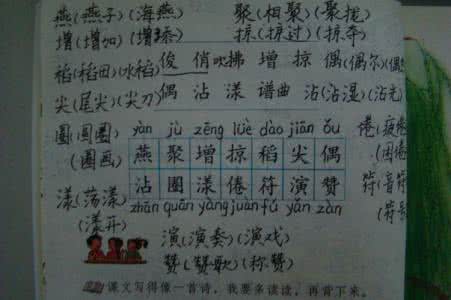 燕(燕子)(海燕) 聚(相聚)(聚拢)
增(增加)(增添) 掠(掠过)(掠夺)
稻(稻田)(水稻) 俊 俏 吹拂 增 掠 偶(偶尔)(偶
尖(尾尖)(尖刀) 偶 沾 漾 谱曲 沾(沾湿)(沾光)
圈(圆圈) yàn jù zēng lüè dào jiān ǒu 倦(疲倦)
(圈画) 燕 聚 增 掠 稻 尖 偶 (困倦)
漾(荡漾) 沾 圈 漾 倦 符 演 赞 符(音符)
(漾开) zhān quān yàng juàn fú yǎn zàn (符号
演(演奏)(演戏)
赞(赞歌)(称赞)
课文写得像一首诗，我要多读读，再背下来。